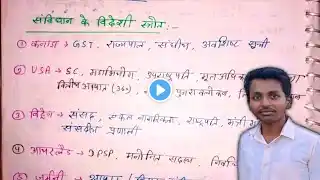 संविधान के विदेशी स्त्रोत :-
① कनाडा → GST, राज्यपाल, संघीय, अवशिष्ट सूची
② USA → SC, महाभियोग, उपराष्ट्रपति, मूल अधिकार
वित्तीय आपात (360) पुनरावलोकन,
③ ब्रिटेन → संसद, एकल नागरिकता, राष्ट्रपति, मंत्री
संसदीय प्रणाली
④ आयरलैंड → DPSP, मनोनित सदस्य,
⑤ जर्मनी →